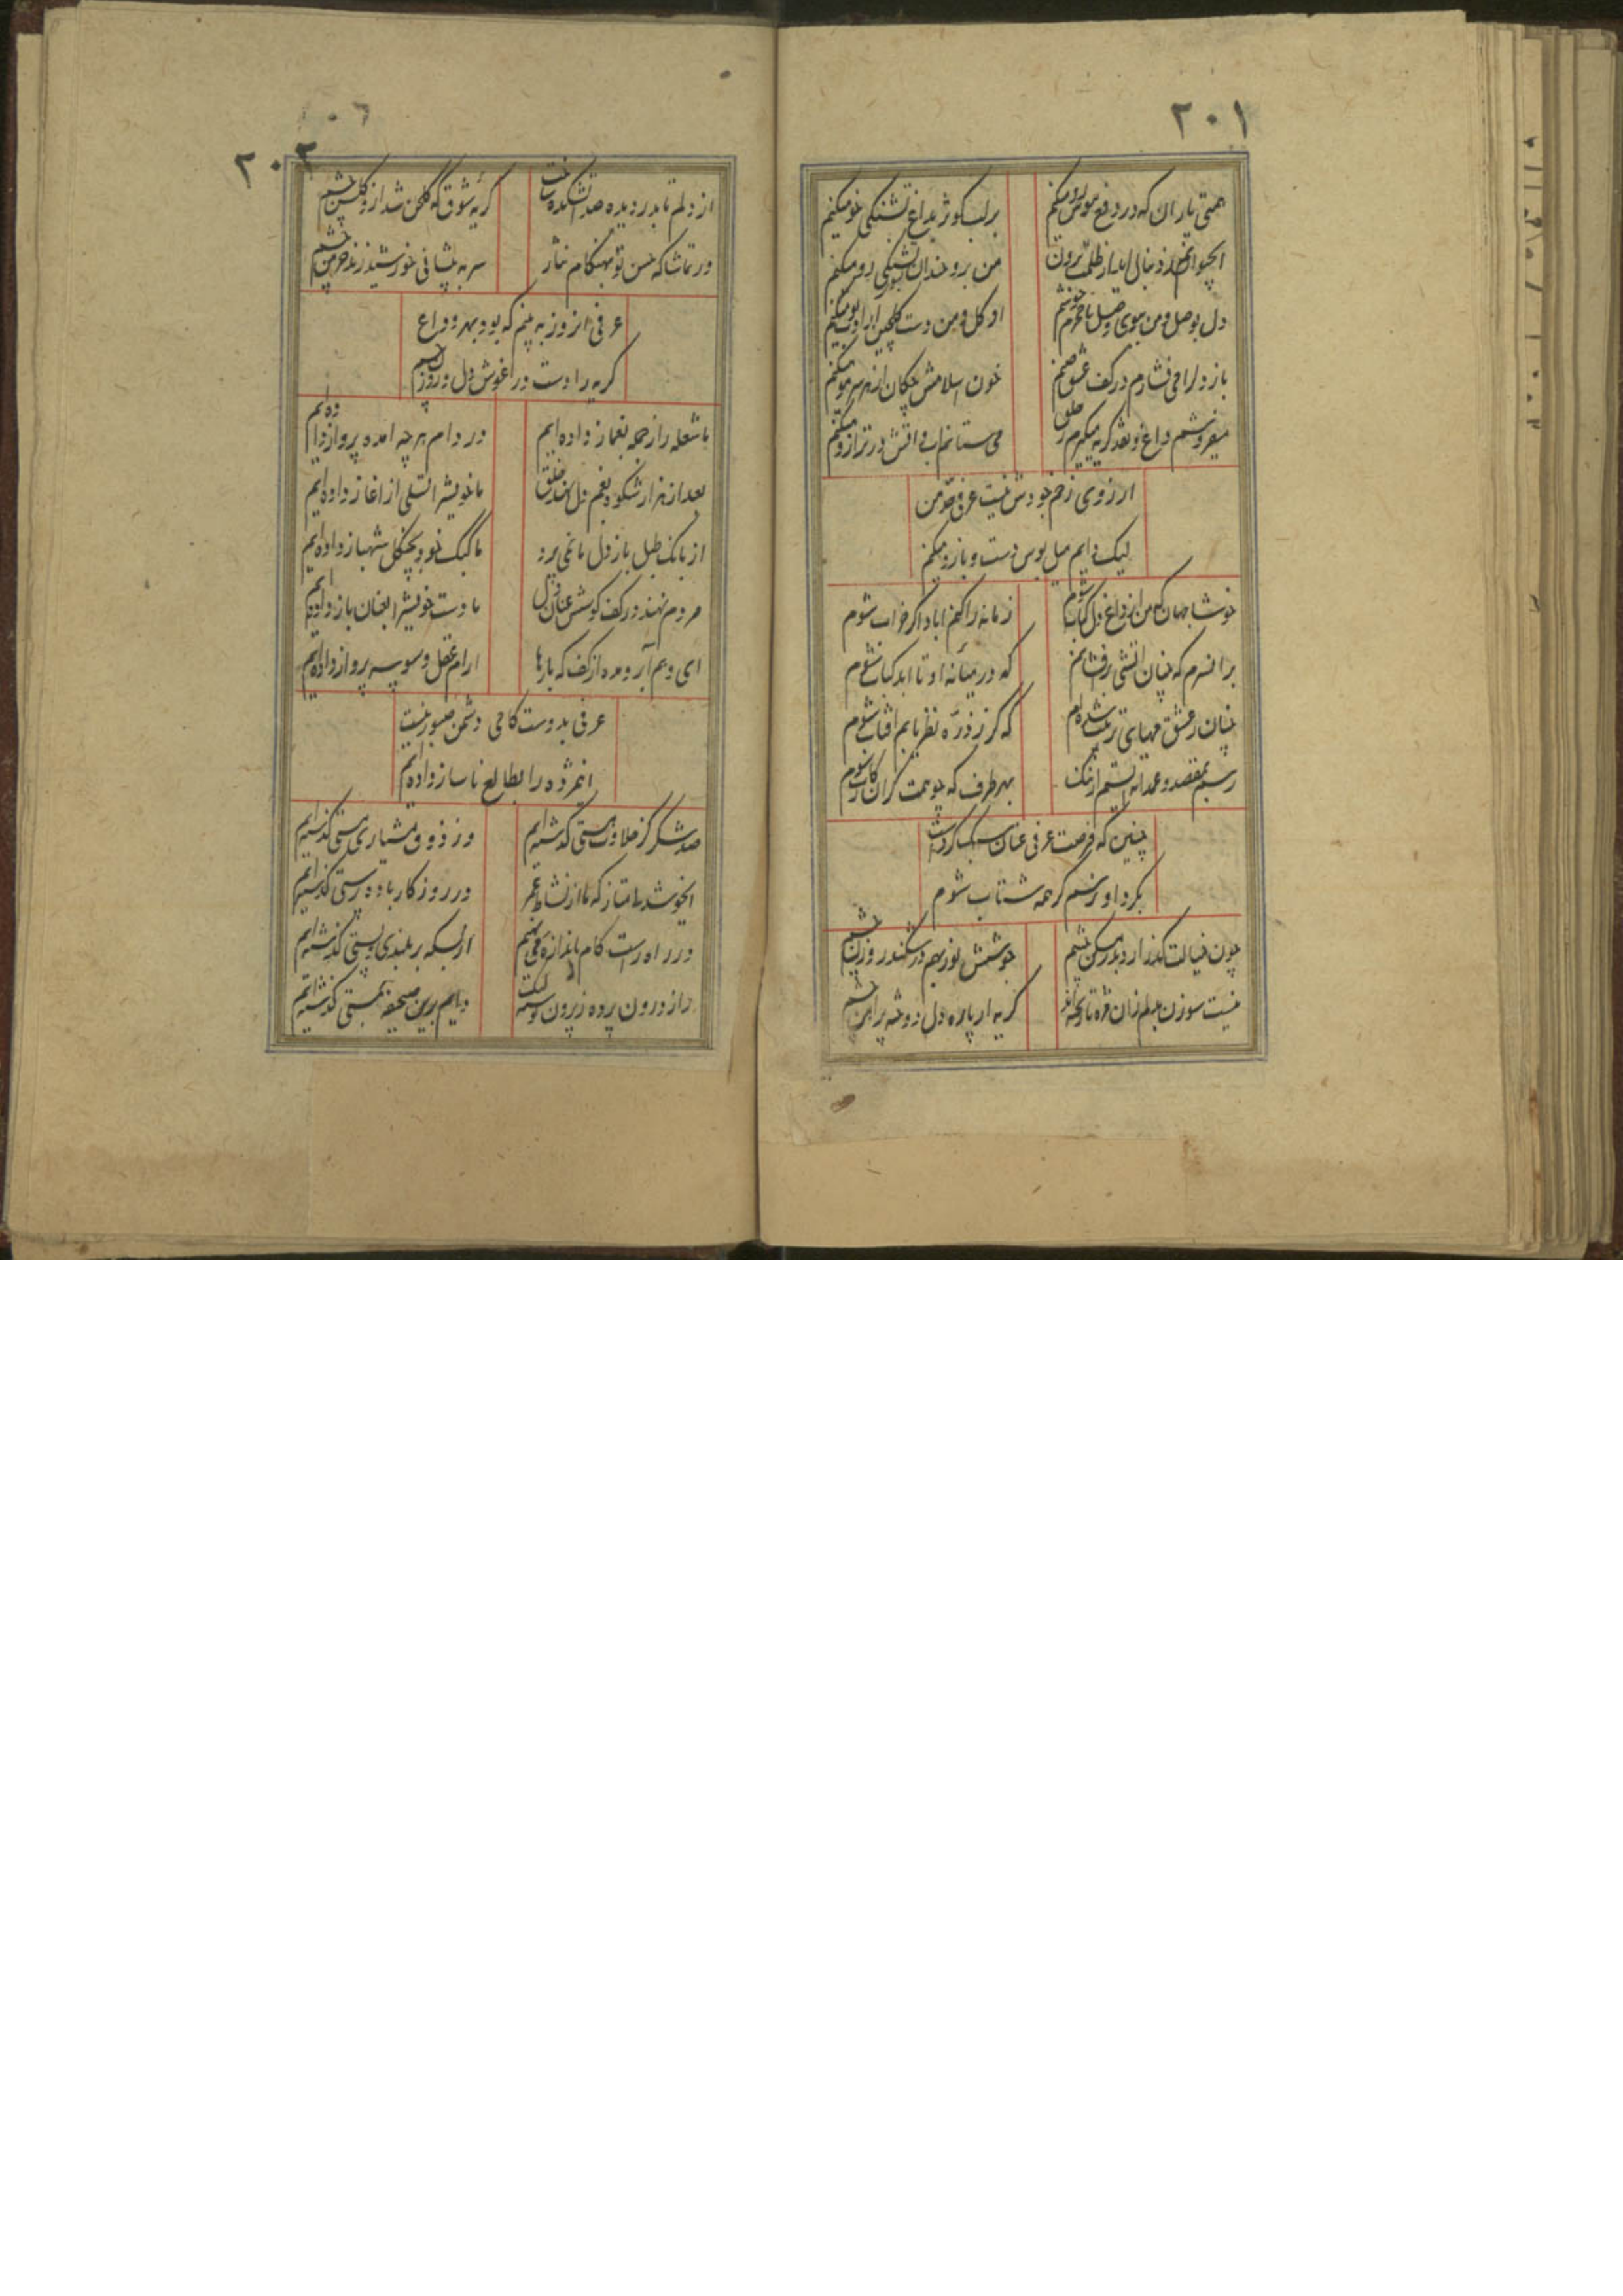 ٢٠١
همتی یاران که در دفع هوس رو میکنم
بر لب کوثر بداغ تشنگی خو میکنم
من بروخندان
دل بوصل و من ببوی وصل نامحرم خوشم
او کل و من دست کلچین را ادب میکنم
باز دل را می فشارم در کف عشق صنم
خون اسلامش چکان از هر سر مو میکنم
میفروشم داغ و نقد کریه میکیرم ز خلق
می ستانم آب و اتش در ترازو میکنم
ارزوی زخم خودش نیست عرفی من
لیک دایم میل بوس دست و بازو میکنم
خوشا جهان که من از داغ دل کباب شوم
زمانه را کنم اباد اکر خراب شوم
بر انسرم که چنان اتشی برافشانم
که در میانه او تا ابد کباب شوم
چنان ز عشق مهیای تربیت شده ام
که کر ز ذره نظر یابم افتاب شوم
رسم بمقصد و عمدا نه ایستم از ننک
بهر طرف که چو همت کران رکاب شوم
چنین که فرصت عرفی عنان سبک کردست
بکرد او نرسم کر همه شتاب شوم
چون خیالت کذارد بدر مسکن چشم
جوشش نور بهم در شکند روزن چشم
نیست سوزن بدلم زان مژه تا ریخته اند
کریه از پاره دل دوخته پیراهن چشم
٢٠٢
از دلم تا بدر دیده صد اتشکده ساخت
کریه شوق که کلخن شد ازو کلشن چشم
در تماشا که حسن تو بهنکام نثار
سر به پیشانی خورشید زند خرمن چشم
عرفی انروز به بینم که بود بهر وداع
کریه را دست در اغوش دل و روزن چشم
با شعله راز جمله بغماز داده ایم
در دام هر چه امده پرواز داده ایم
بعد از هزار شکوه بغم دل نهند خلق
ما خویش را تسلی از اغاز داده ایم
از بانک طبل باز دل ما نمی پرد
ما کبک خو بچنکل شهباز داده ایم
مردم نهند در کف کوشش عنان دل
ما دست خویش را بعنان باز داده ایم
ای وهم آبرو مده از کف که بارها
ارام عقل وسوسه پرواز داده ایم
عرفی بدوست کامی دشمن صبور نیست
اینمژده را بطالع ناساز داده ایم
صد شکر کز حلاوت هستی کذشته ایم
وز ذوق هشیاری و مستی کذشته ایم
ایخوش دل امتیاز که ما از نشاط عمر
در روزکار باده پرستی کذشته ایم
در راه راست کام باندازه می نهیم
از بسکه بر بلندی و پستی کذشته ایم
راز درون پرده ز بیرون نوشته لیک
دایم برین صحیفه بمستی کذشته ایم